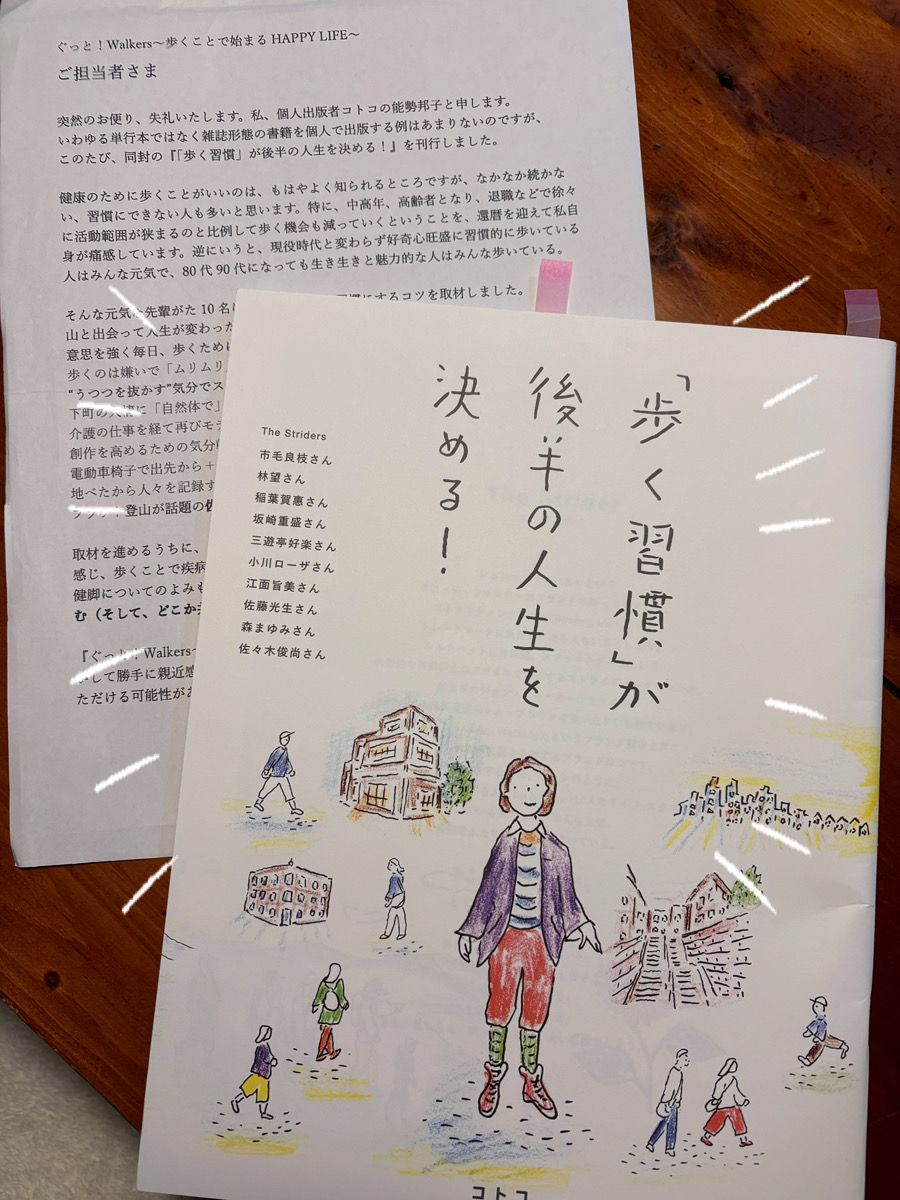 ぐっと！Walkers〜歩くことで始まる HAPPY LIFE〜
ご担当者さま
突然のお便り、失礼いたします。私、個人出版者コトコの能勢邦子と申します。
いわゆる単行本ではなく雑誌形態の書籍を個人で出版する例はあまりないのですが、
このたび、同封の『「歩く習慣」が後半の人生を決める！』を刊行しました。
健康のために歩くことがいいのは、もはやよく知られるところですが、なかなか続かな
い、習慣にできない人も多いと思います。特に、中高年、高齢者となり、退職などで徐々
に活動範囲が狭まるのと比例して歩く機会も減っていくということを、還暦を迎えて私自
身が痛感しています。逆にいうと、現役時代と変わらず好奇心旺盛に習慣的に歩いている
人はみんな元気で、80代90代になっても生き生きと魅力的な人はみんな歩いている。
そんな元気な先輩がた 10 名に
慣にするコツを取材しました。
山と出会って人生が変わった
意思を強く毎日、歩くため
歩くのは嫌いで「ムリムリ
“うつつを抜かす”気分でス
下町の人情に「自然体で」
介護の仕事を経て再びモデ
創作を高めるための気分
電動車椅子で出先から＋
地べたから人々を記録す
登山が話題の
取材を進めるうちに、
感じ、歩くことで疾病
健脚についてのよみも
む（そして、どこか
『ぐっと！Walkers〜
して勝手に親近感
ただける可能性が
「歩く習慣」が
後半の人生を
決める！
The Striders
市毛良枝さん
林望さん
稲葉賀惠さん
坂崎重盛さん
三遊亭好楽さん
小川ローザさん
江面旨美さん
佐藤光生さん
森まゆみさん
佐々木俊尚さん
コトコ